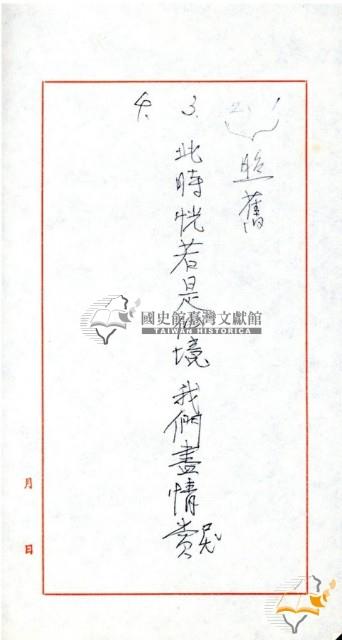 1. 2. 照舊
3. 此時恍若是仙境 我們盡情賞
4.
月 日
國史館臺灣文獻館
TAIWAN HISTORICA